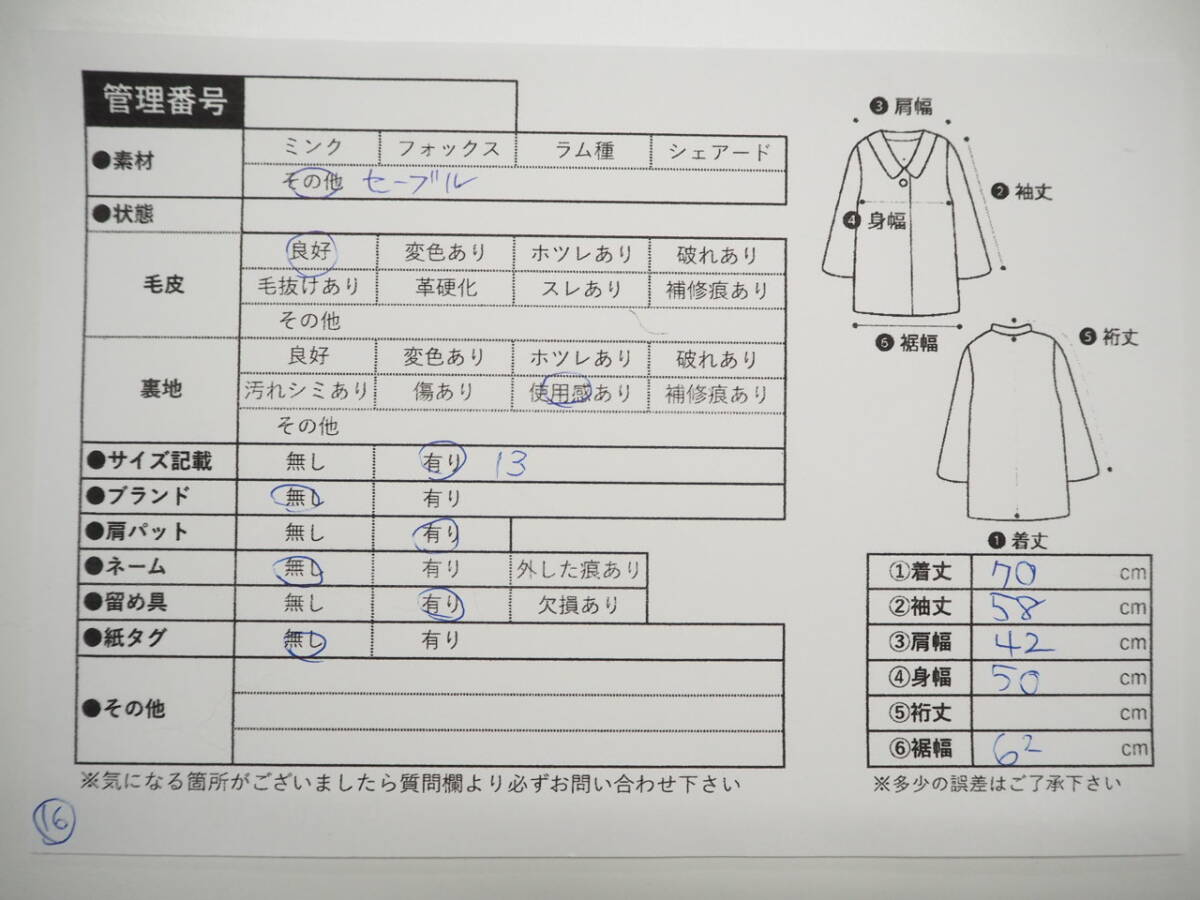 管理番号
●素材 ミンク フォックス ラム種 シェアード
その他 セーブル
●状態
毛皮 良好 変色あり ホツレあり 破れあり
毛抜けあり 革硬化 スレあり 補修痕あり
その他
裏地 良好 変色あり ホツレあり 破れあり
汚れシミあり 傷あり 使用感あり 補修痕あり
その他
●サイズ記載 無し 有り 13
●ブランド 無し 有り
●肩パット 無し 有り
●ネーム 無し 有り 外した痕あり
●留め具 無し 有り 欠損あり
●紙タグ 無し 有り
●その他
※気になる箇所がございましたら質問欄より必ずお問い合わせ下さい
16
❸肩幅
❷袖丈
❹身幅
❻裾幅
❺裄丈
❶着丈
①着丈 70 cm
②袖丈 58 cm
③肩幅 42 cm
④身幅 50 cm
⑤裄丈 cm
⑥裾幅 62 cm
※多少の誤差はご了承下さい